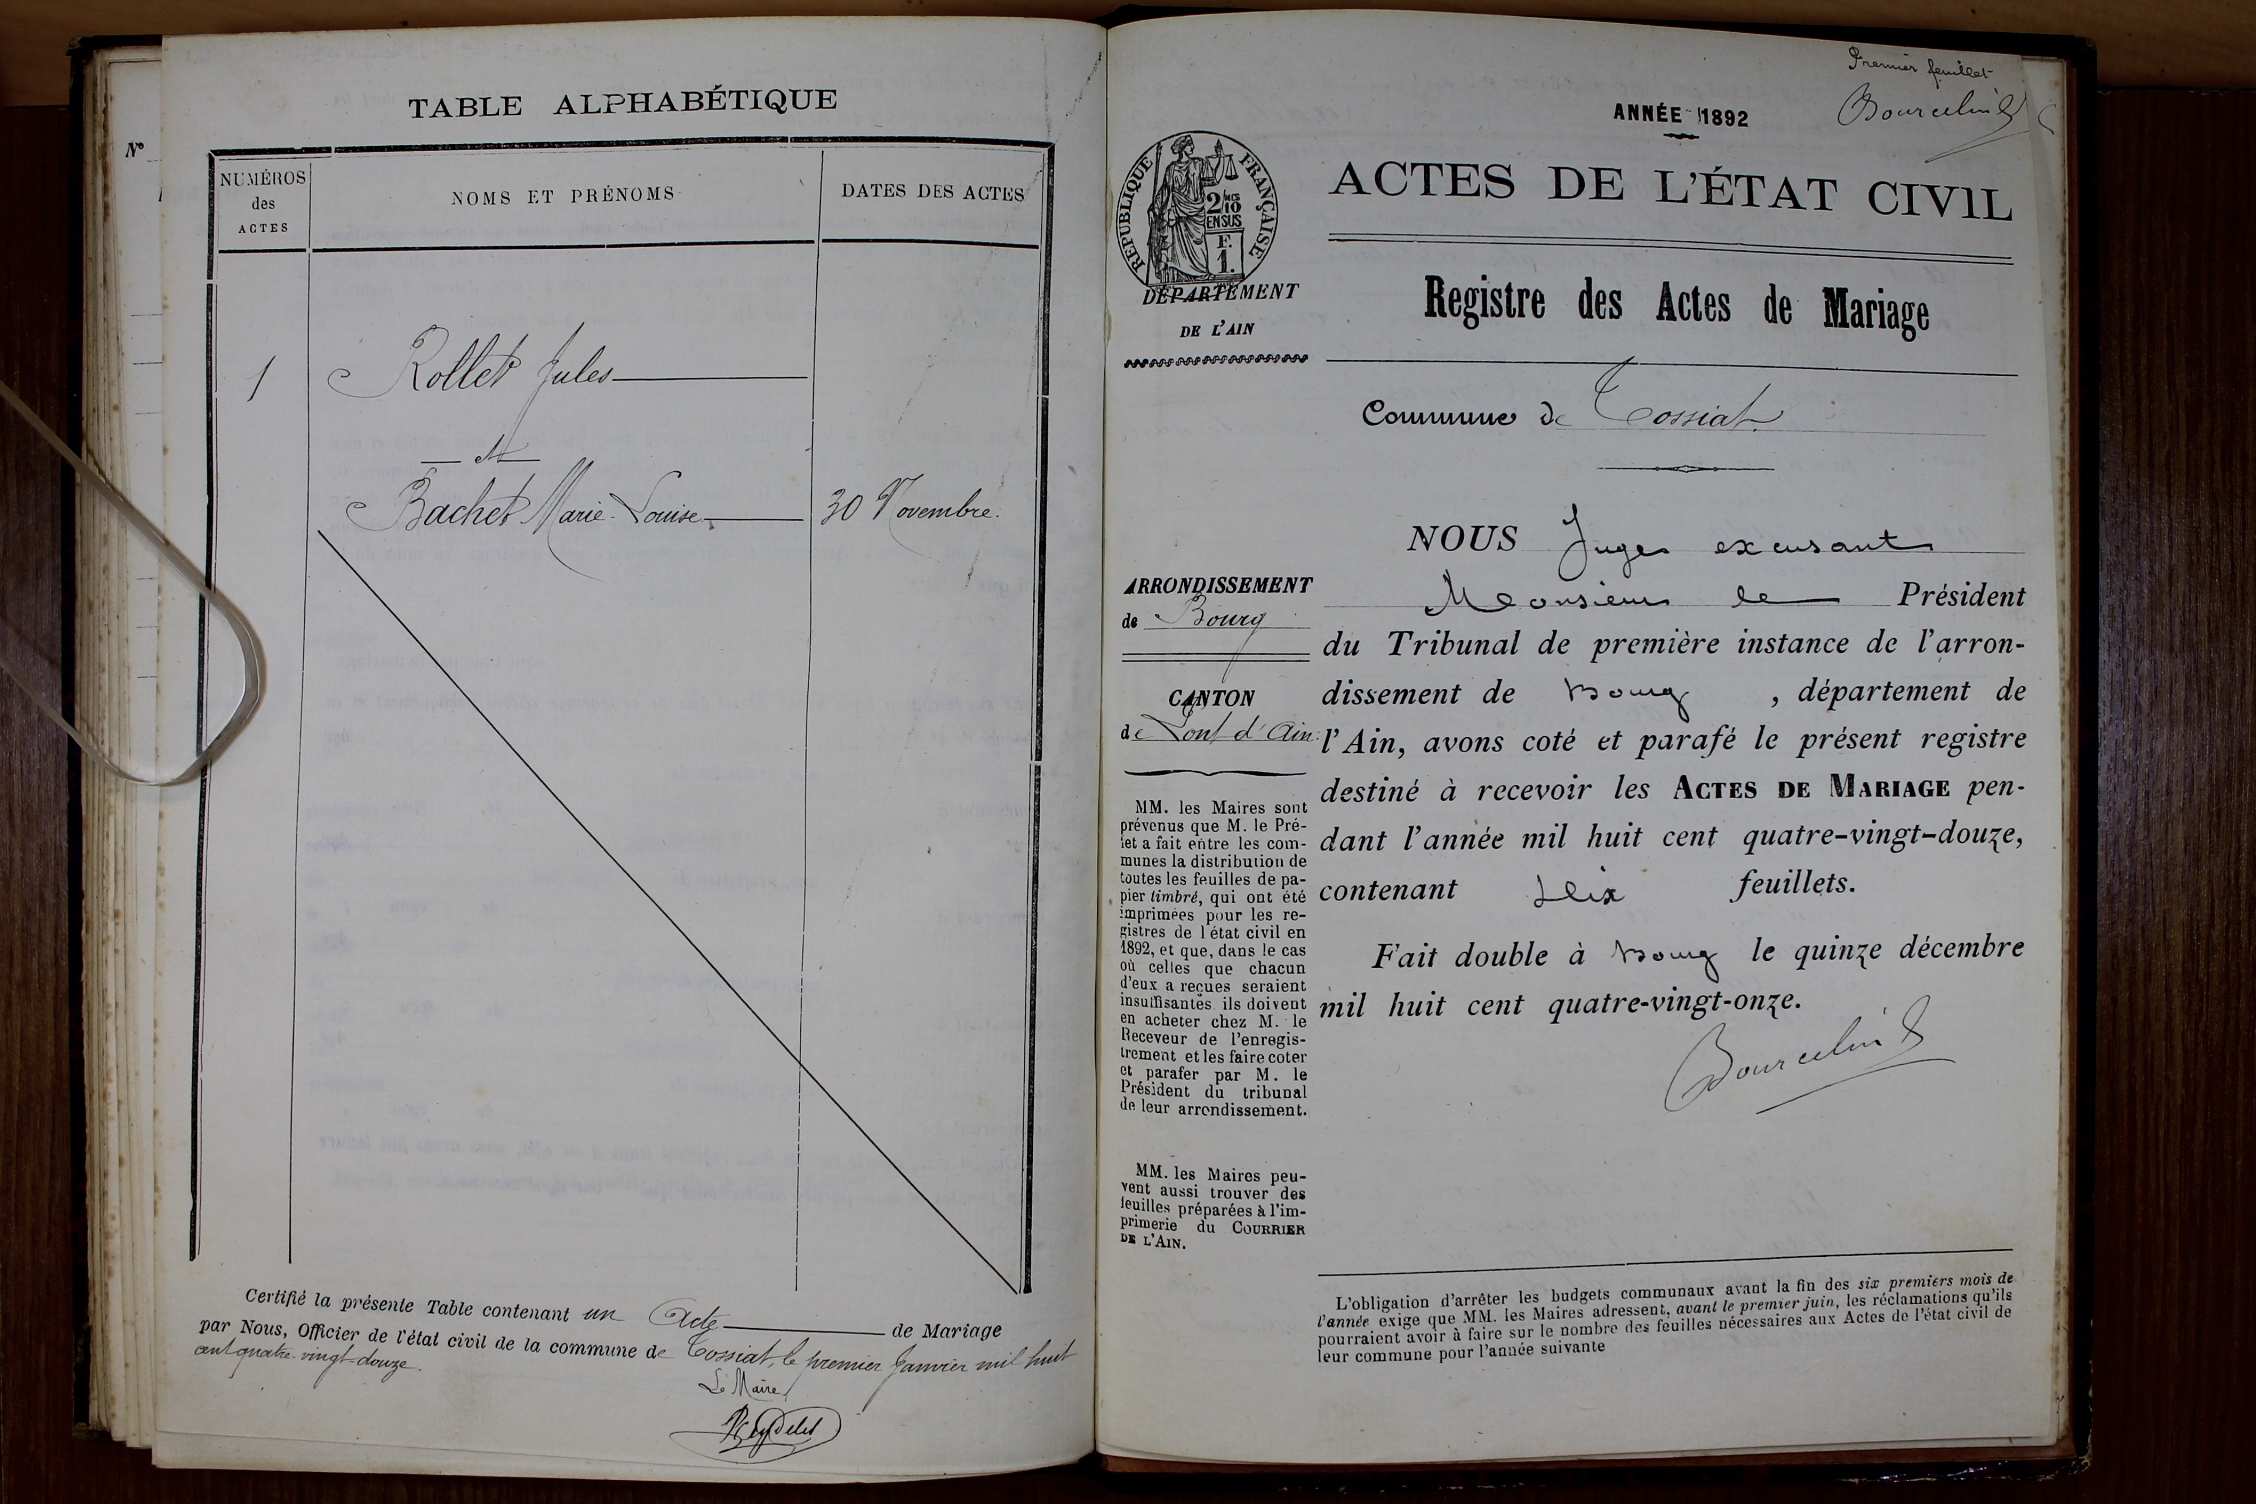 N°
TABLE ALPHABÉTIQUE
NUMÉROS
des
ACTES
NOMS ET PRÉNOMS
DATES DES ACTES
1
Rollet Jules
et
Bachet Marie-Louise
30 Novembre.
Certifié la présente Table contenant un Acte de Mariage
par Nous, Officier de l'état civil de la commune de Tossiat, le premier Janvier mil huit
cent quatre-vingt-douze.
Le Maire
Premier feuillet
ANNÉE 1892
RÉPUBLIQUE FRANÇAISE
2/10
EN SUS
F.
1.
ACTES DE L'ÉTAT CIVIL
DÉPARTEMENT
DE L'AIN
Registre des Actes de Mariage
Commune de Tossiat
ARRONDISSEMENT
de Bourg
CANTON
de Pont d'Ain
MM. les Maires sont
prévenus que M. le Pré-
fet a fait entre les com-
munes la distribution de
toutes les feuilles de pa-
pier timbré, qui ont été
imprimées pour les re-
gistres de l'état civil en
1892, et que, dans le cas
où celles que chacun
d'eux a reçues seraient
insuffisantes ils doivent
en acheter chez M. le
Receveur de l'enregis-
trement et les faire coter
et parafer par M. le
Président du tribunal
de leur arrondissement.
MM. les Maires peu-
vent aussi trouver des
feuilles préparées à l'im-
primerie du COURRIER
DE L'AIN.
NOUS Juge excusant
Monsieur le Président
du Tribunal de première instance de l'arron-
dissement de Bourg, département de
l'Ain, avons coté et parafé le présent registre
destiné à recevoir les ACTES DE MARIAGE pen-
dant l'année mil huit cent quatre-vingt-douze,
contenant dix feuillets.
Fait double à Bourg le quinze décembre
mil huit cent quatre-vingt-onze.
L'obligation d'arrêter les budgets communaux avant la fin des six premiers mois de
l'année exige que MM. les Maires adressent, avant le premier juin, les réclamations qu'ils
pourraient avoir à faire sur le nombre des feuilles nécessaires aux Actes de l'état civil de
leur commune pour l'année suivante